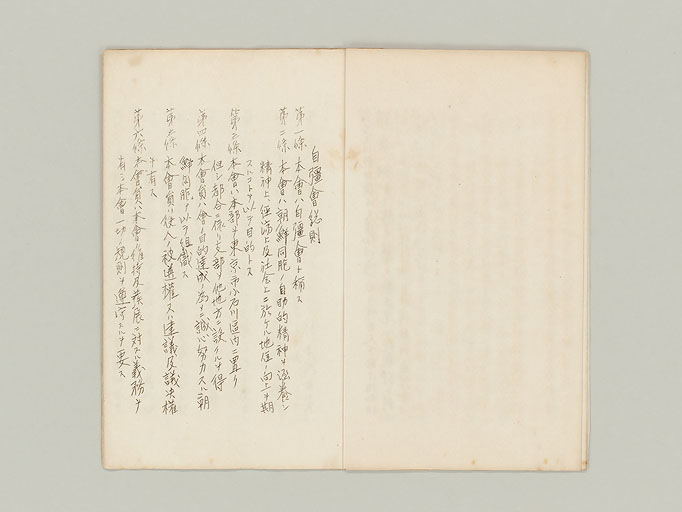 自彊會総則
第一條 本會ハ自彊會ト稱ス
第二條 本會ハ朝鮮同胞ノ自助的精神ヲ涵養シ
精神上、經済上及社会上ニ於ケル地位ノ向上ヲ期
スルコトヲ以テ目的トス
第三條 本會ハ本部ヲ東京市小石川區内ニ置ク
但シ都合ニ依リ支部ヲ他地方ニ設クルヲ得
第四條 本會員ハ會ノ目的達成ノ為メニ誠心努力スル朝
鮮同胞ヲ以テ組織ス
第五條 本會員ハ役人ノ被選權又ハ建議及議决權
ヲ有ス
第六條 本會員ハ本會ノ維持及発展ニ対スル義務ヲ
有シ本會一切ノ規則ヲ遵守スルヲ要ス